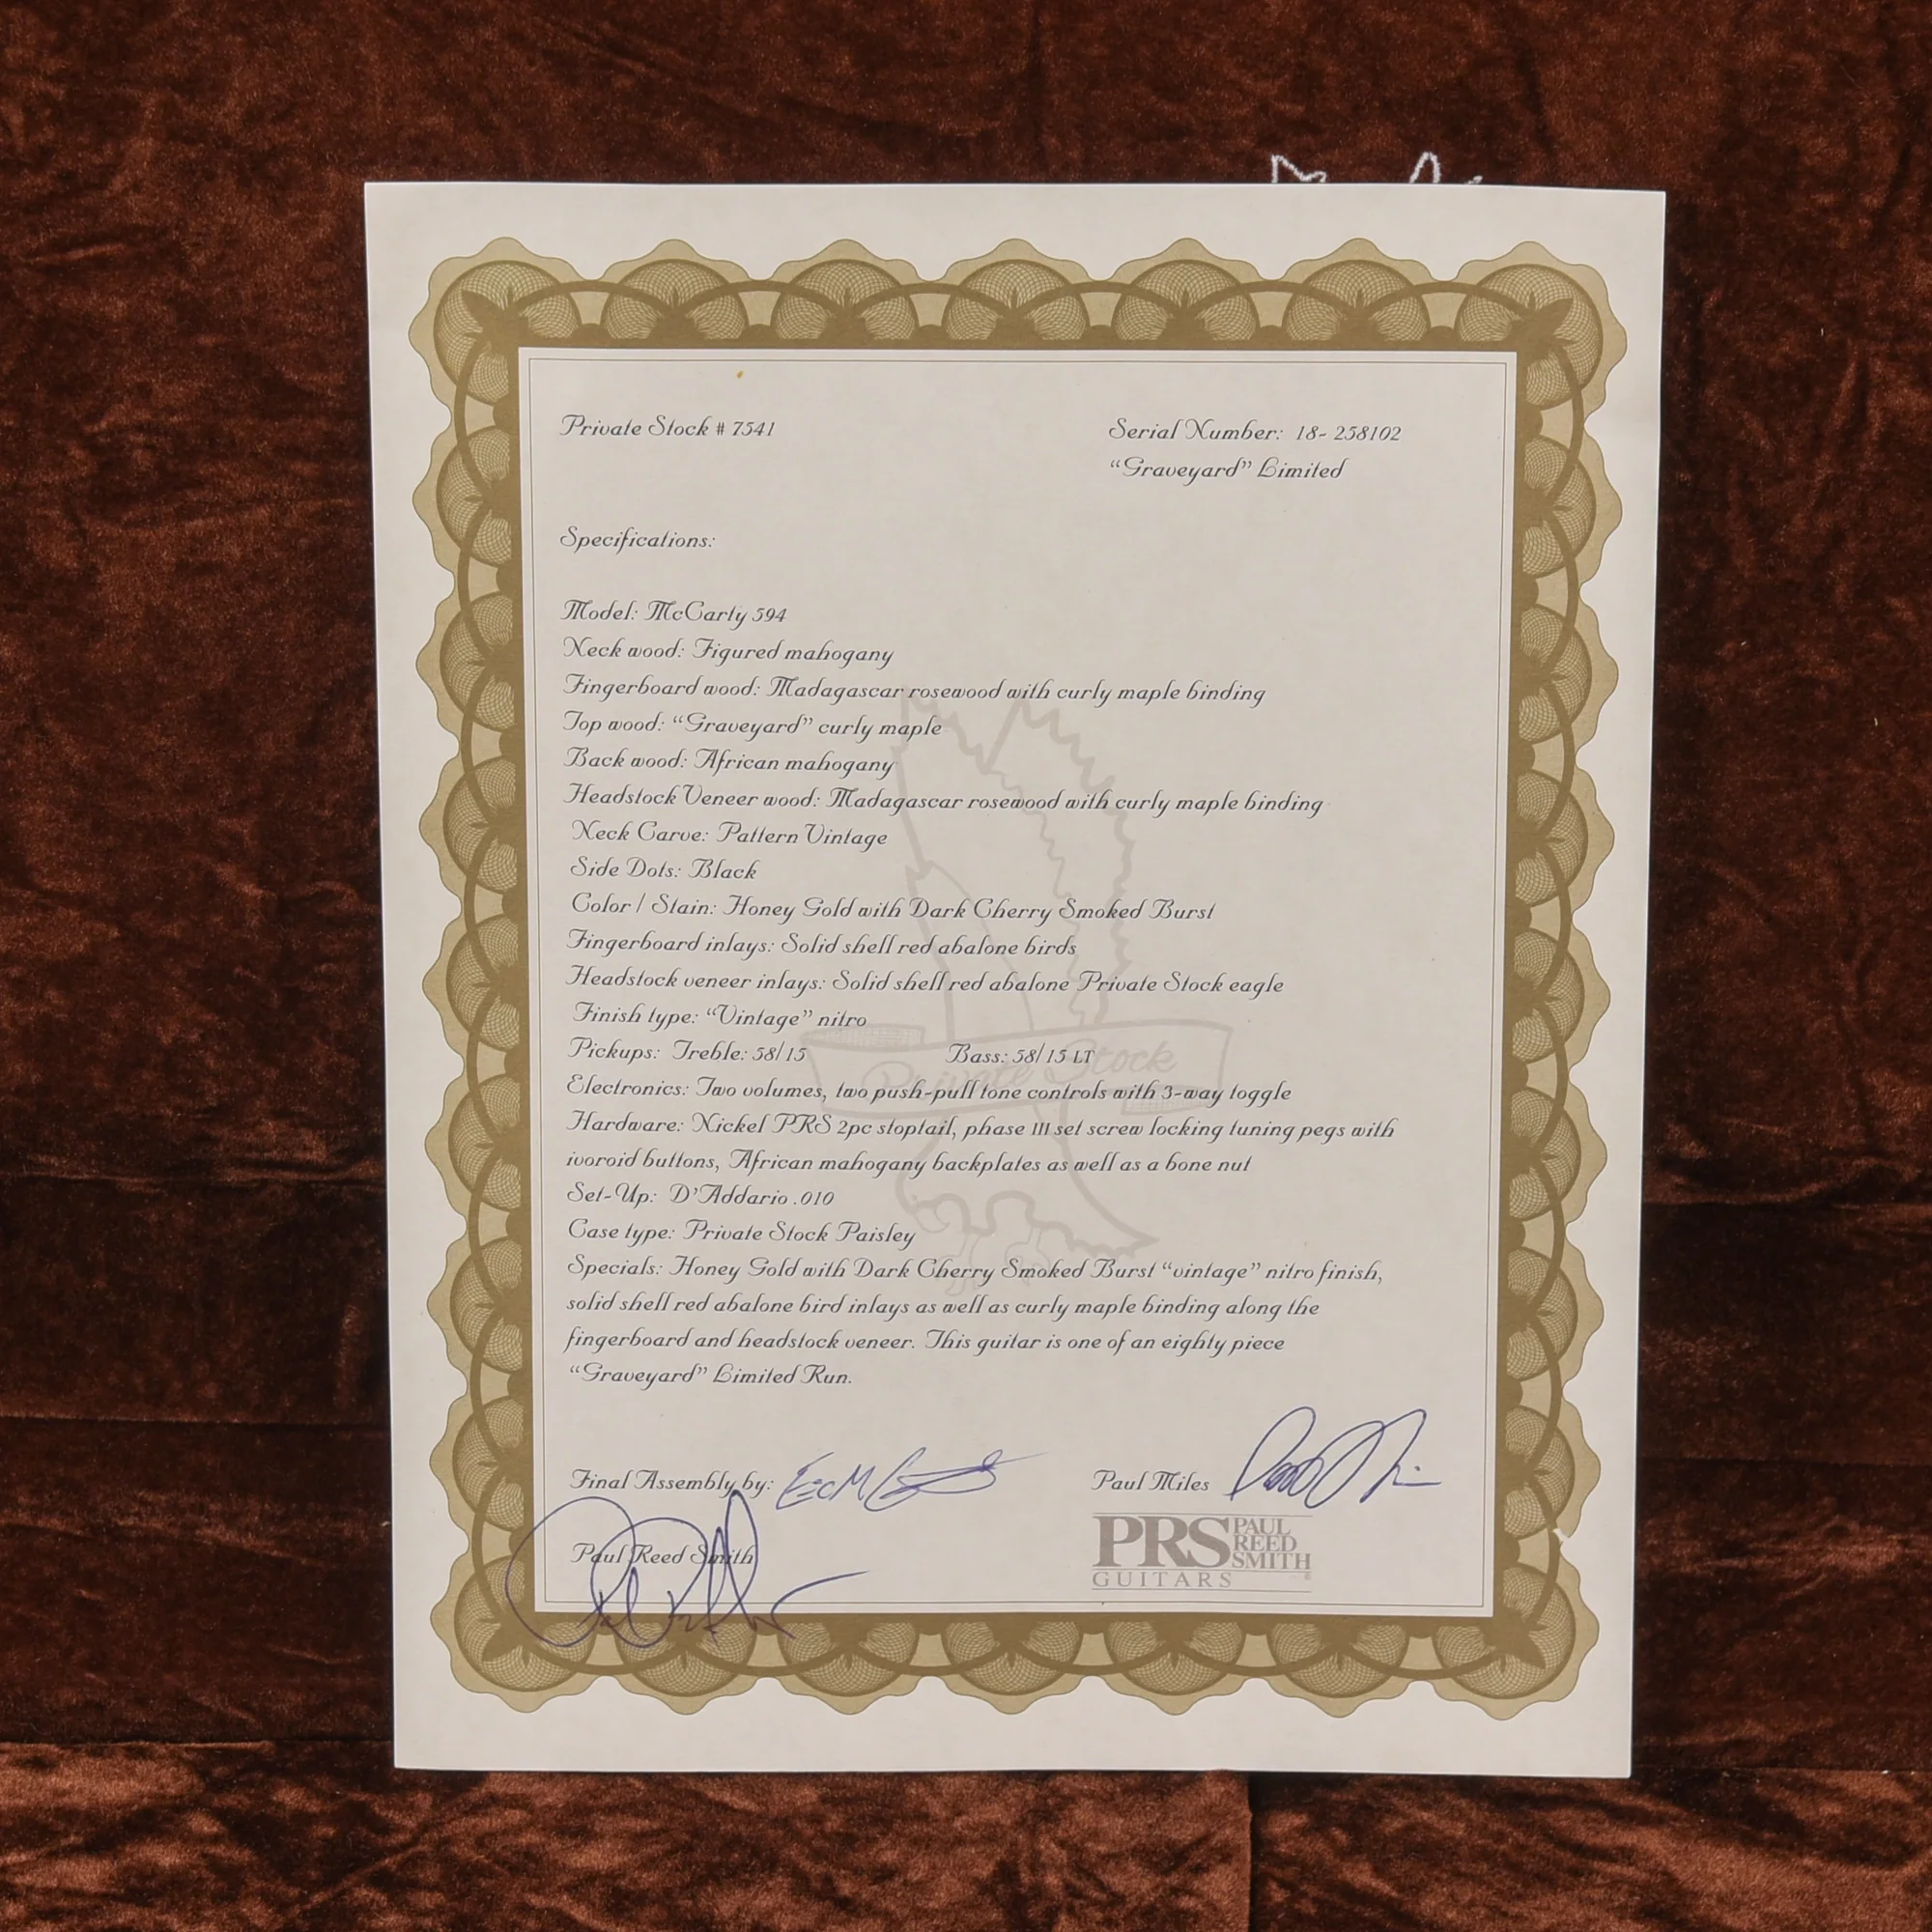 Private Stock # 7541
Serial Number: 18- 258102
"Graveyard" Limited
Specifications:
Model: McCarty 594
Neck wood: Figured mahogany
Fingerboard wood: Madagascar rosewood with curly maple binding
Top wood: "Graveyard" curly maple
Back wood: African mahogany
Headstock Veneer wood: Madagascar rosewood with curly maple binding
Neck Carve: Pattern Vintage
Side Dots: Black
Color / Stain: Honey Gold with Dark Cherry Smoked Burst
Fingerboard inlays: Solid shell red abalone birds
Headstock veneer inlays: Solid shell red abalone Private Stock eagle
Finish type: "Vintage" nitro
Pickups: Treble: 58/15 Bass: 58/15 LT
Private Stock
Electronics: Two volumes, two push-pull tone controls with 3-way toggle
Hardware: Nickel PRS 2pc stoptail, phase III set screw locking tuning pegs with
ivoroid buttons, African mahogany backplates as well as a bone nut
Set-Up: D'Addario .010
Case type: Private Stock Paisley
Specials: Honey Gold with Dark Cherry Smoked Burst "vintage" nitro finish,
solid shell red abalone bird inlays as well as curly maple binding along the
fingerboard and headstock veneer. This guitar is one of an eighty piece
"Graveyard" Limited Run.
Final Assembly by:
Paul Miles
Paul Reed Smith
PRS PAUL
REED
SMITH
GUITARS